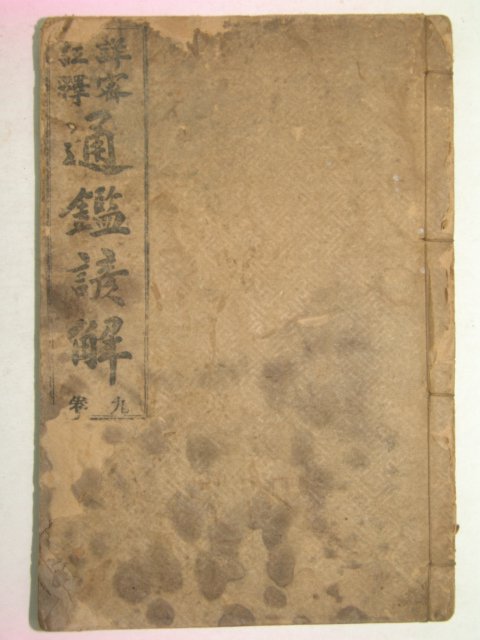 詳密
註釋
通鑑諺解
卷九